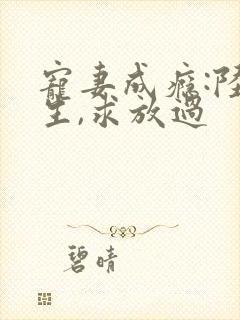 寵妻成癮:陸
生,求放過
碧晴